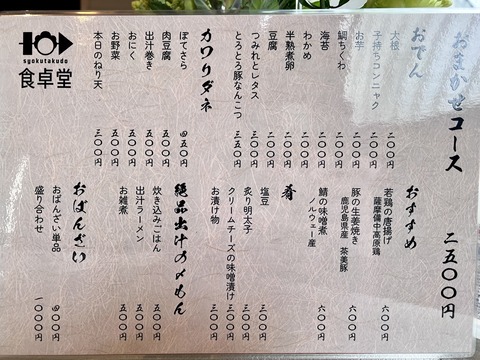 おまかせコース 二五〇〇円
おでん
大根 二〇〇円
子持ちコンニャク 二〇〇円
お芋 二〇〇円
鯛ちくわ 二〇〇円
海苔 二〇〇円
わかめ 二〇〇円
半熟煮卵 二〇〇円
豆腐 二〇〇円
つみれとレタス 三〇〇円
とろとろ豚なんこつ 三五〇円
カワリダネ
ぽてさら 四五〇円
肉豆腐 五〇〇円
出汁巻き 五〇〇円
おにく 五〇〇円
お野菜 五〇〇円
本日のねり天 三〇〇円
おすすめ
若鶏の唐揚げ 六〇〇円
薩摩備中高原鶏
豚の生姜焼き 六〇〇円
鹿児島県産 茶美豚
鯖の味噌煮 六〇〇円
ノルウェー産
肴
塩豆 三〇〇円
炙り明太子 三〇〇円
クリームチーズの味噌漬け 三〇〇円
お漬け物 三〇〇円
絶品出汁の〆もん
炊き込みごはん 五〇〇円
出汁ラーメン 五〇〇円
お雑煮 五〇〇円
おばんざい
おばんざい単品 四〇〇円
盛り合わせ 一〇〇〇円
syokutakudo
食卓堂